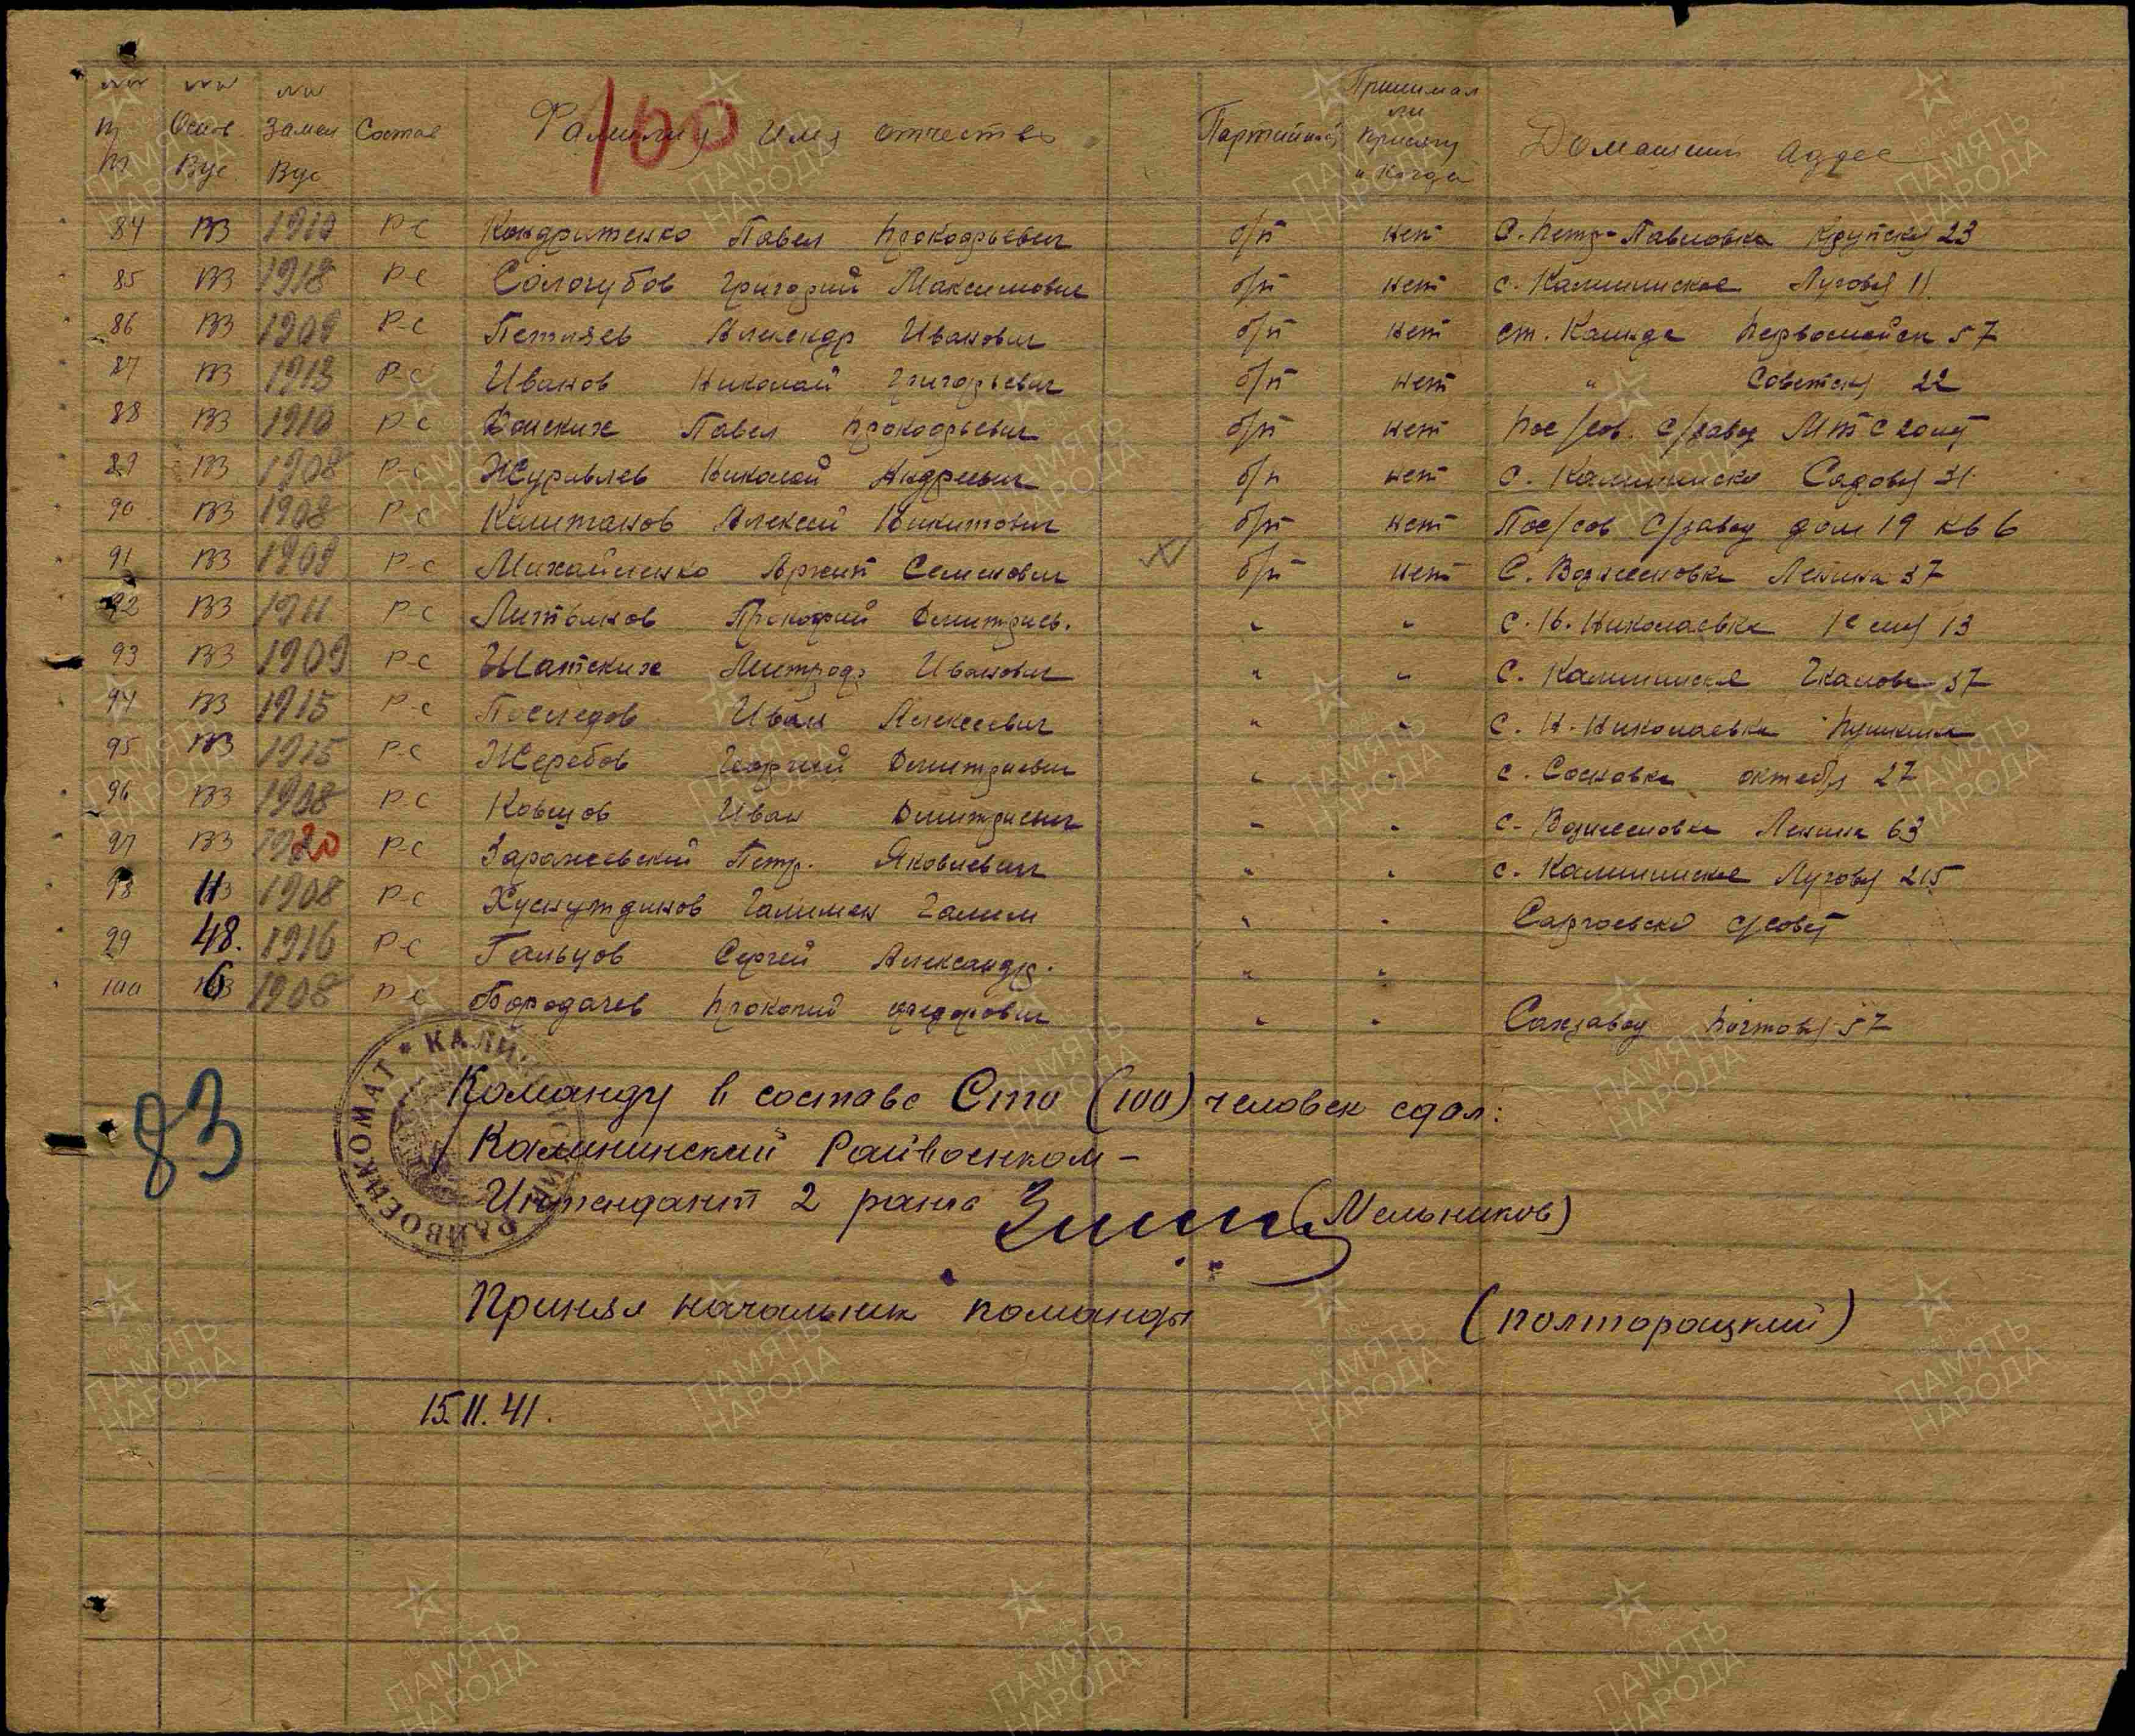 №№ п/п №№ Основ. Вус №№ Замен Вус Состав Фамилия Имя отчество Партийность Принимал ли присягу и когда Домашний адрес
100
84 133 1910 Р-С Кондратенко Павел Прокофьевич б/п нет С. Петр-Павловка Крупской 23
85 133 1918 Р-С Сологубов Григорий Максимович б/п нет с. Калининское Лугов 11
86 133 1909 Р-С Александр Иванович б/п нет ст. Каинда Первомайск 57
87 133 1913 Р-С Иванов Николай Григорьевич б/п нет " Советск 22
88 133 1910 Р-С Павел Прокофьевич б/п нет Пос/сов. С/завод МТС
89 133 1908 Р-С Журавлев Николай Андреевич б/п нет С. Калининско Садов 31
90 133 1908 Р-С Калитанов Алексей Никитович б/п нет Пос/сов С/завод дом 19 кв 6
91 133 1909 Р-С Михайленко Архип Семенович б/п нет С. Вознесеновка Ленина 37
92 133 1911 Р-С Литвинов Прокофий Дмитриев. " " с. Н. Николаевка 13
93 133 1909 Р-С Шатских Митрофа Иванович " " С. Калининское Чкалова 37
94 133 1915 Р-С Последов Иван Алексеевич " " С. Н. Николаевка Пушкина
95 133 1915 Р-С Жеребов Георгий Дмитриевич " " с. Сосновка октябр 27
96 133 1908 Р-С Ковшов Иван Дмитриевич " " с. Вознесеновка Ленина 63
97 133 1920 Р-С Заражевский Петр. Яковлевич " " с. Калининское Лугов 215
98 133 1908 Р-С Хуснутдинов Галимзя Галим " " с/совет
99 48. 1916 Р-С Гальцов Сергей Александр. " "
100 6 1908 Р-С Бородачев Прокопий Федорович " " Сахзавод Почтов 57
* КАЛИНИНСКИЙ РАЙВОЕНКОМАТ
83
Команду в составе Сто (100) человек сдал:
Калининский Райвоенком -
Интендант 2 ранга (Мельников)
Принял начальник команды (полторацкий)
15.11.41.
ПАМЯТЬ НАРОДА